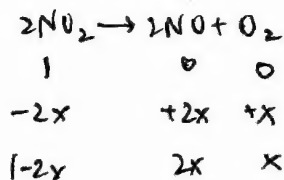 2NO₂ → 2NO + O₂
1 0 0
-2x +2x +x
1-2x 2x x